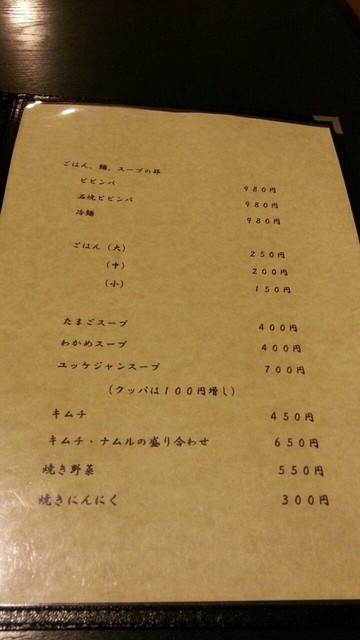 ごはん、麺、スープの部
ビビンバ 980円
石焼ビビンバ 980円
冷麺 980円
ごはん（大） 250円
（中） 200円
（小） 150円
たまごスープ 400円
わかめスープ 400円
ユッケジャンスープ 700円
（クッパは100円増し）
キムチ 450円
キムチ・ナムルの盛り合わせ 650円
焼き野菜 550円
焼きにんにく 300円